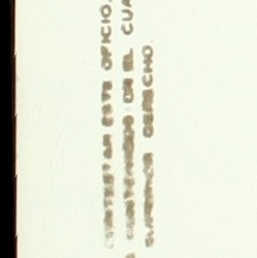 CONTESTAR ESTE OFICIO,
CONTENIDOS EN EL CUA
SUPERIOR DERECHO